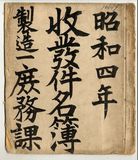 昭和四年
收發件名簿
製造一庶務課